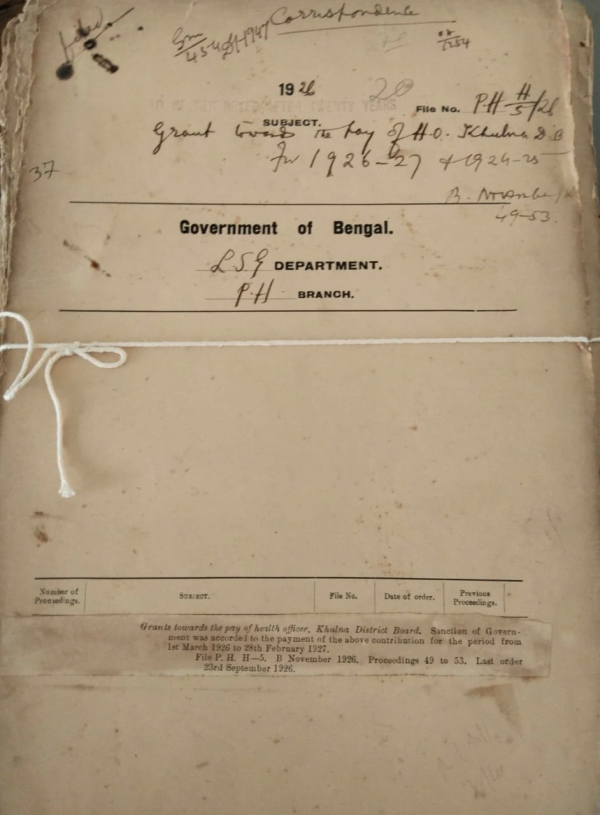 Correspondence
1926 20
File No. PH H/5/26
SUBJECT.
Grant towards the pay of H.O. Khulna D.B
For 1926-27 & 1924-25
37
B. November
49-53.
Government of Bengal.
L.S.G DEPARTMENT.
P.H BRANCH.
Number of Proceedings. SUBJECT. File No. Date of order. Previous Proceedings.
Grants towards the pay of health officer, Khulna District Board. Sanction of Govern-
ment was accorded to the payment of the above contribution for the period from
1st March 1926 to 28th February 1927.
File P. H. H—5. B November 1926, Proceedings 49 to 53. Last order
23rd September 1926.